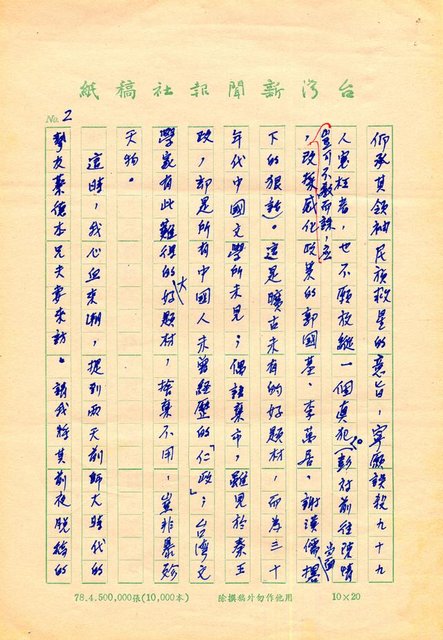 台灣新聞報社稿紙
No. 2
仰承其領袖民族救星的意旨，寧願誤殺九十九
人寃枉者，也不願放縱一個真犯。（彭對前往陳情
豈可不教而誅，
，改採感化政策的郭國基、李萬居、謝漢儒
當面
下的狠話）。這是曠古未有的好題材，而為三十
年代中國文學所未見；偶語棄市，雖見於秦王
政，却是所有中國人未曾經歷的「仁政」；台灣文
學家有此難得的大好題材，捨棄不用，豈非暴殄
天物。
這時，我心血來潮，提到兩天前師大時代的
摯友蔡德本兄夫妻來訪。請我將其前夜脫稿的
78.4.500,000張(10,000本)
除撰稿外勿作他用
10×20